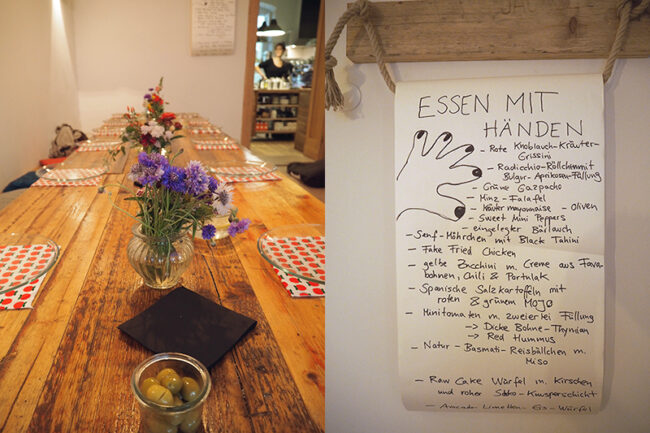 ESSEN MIT
HÄNDEN
- Rote Knoblauch-Kräuter-
Grissini
- Radicchio-Röllchen mit
Bulgur-Aprikosen-Füllung
- Grüne Gazpacho
- Minz-Falafel
- Kräutermayonnaise - Oliven
- Sweet Mini Peppers
- eingelegter Bärlauch
- Senf-Möhrchen mit Black Tahini
- Fake Fried Chicken
- gelbe Zucchini m. Creme aus Fava-
bohnen, Chili & Portulak
- Spanische Salzkartoffeln mit
roten & grünem Mojo
- Minitomaten m. zweierlei Füllung
→ Dicke Bohne-Thymian
→ Red Hummus
- Natur-Basmati-Reisbällchen m.
Miso
- Raw Cake Würfel m. Kirschen
und roher Schoko-Knusperschicht
- Avocado-Limetten-Eis-Würfel